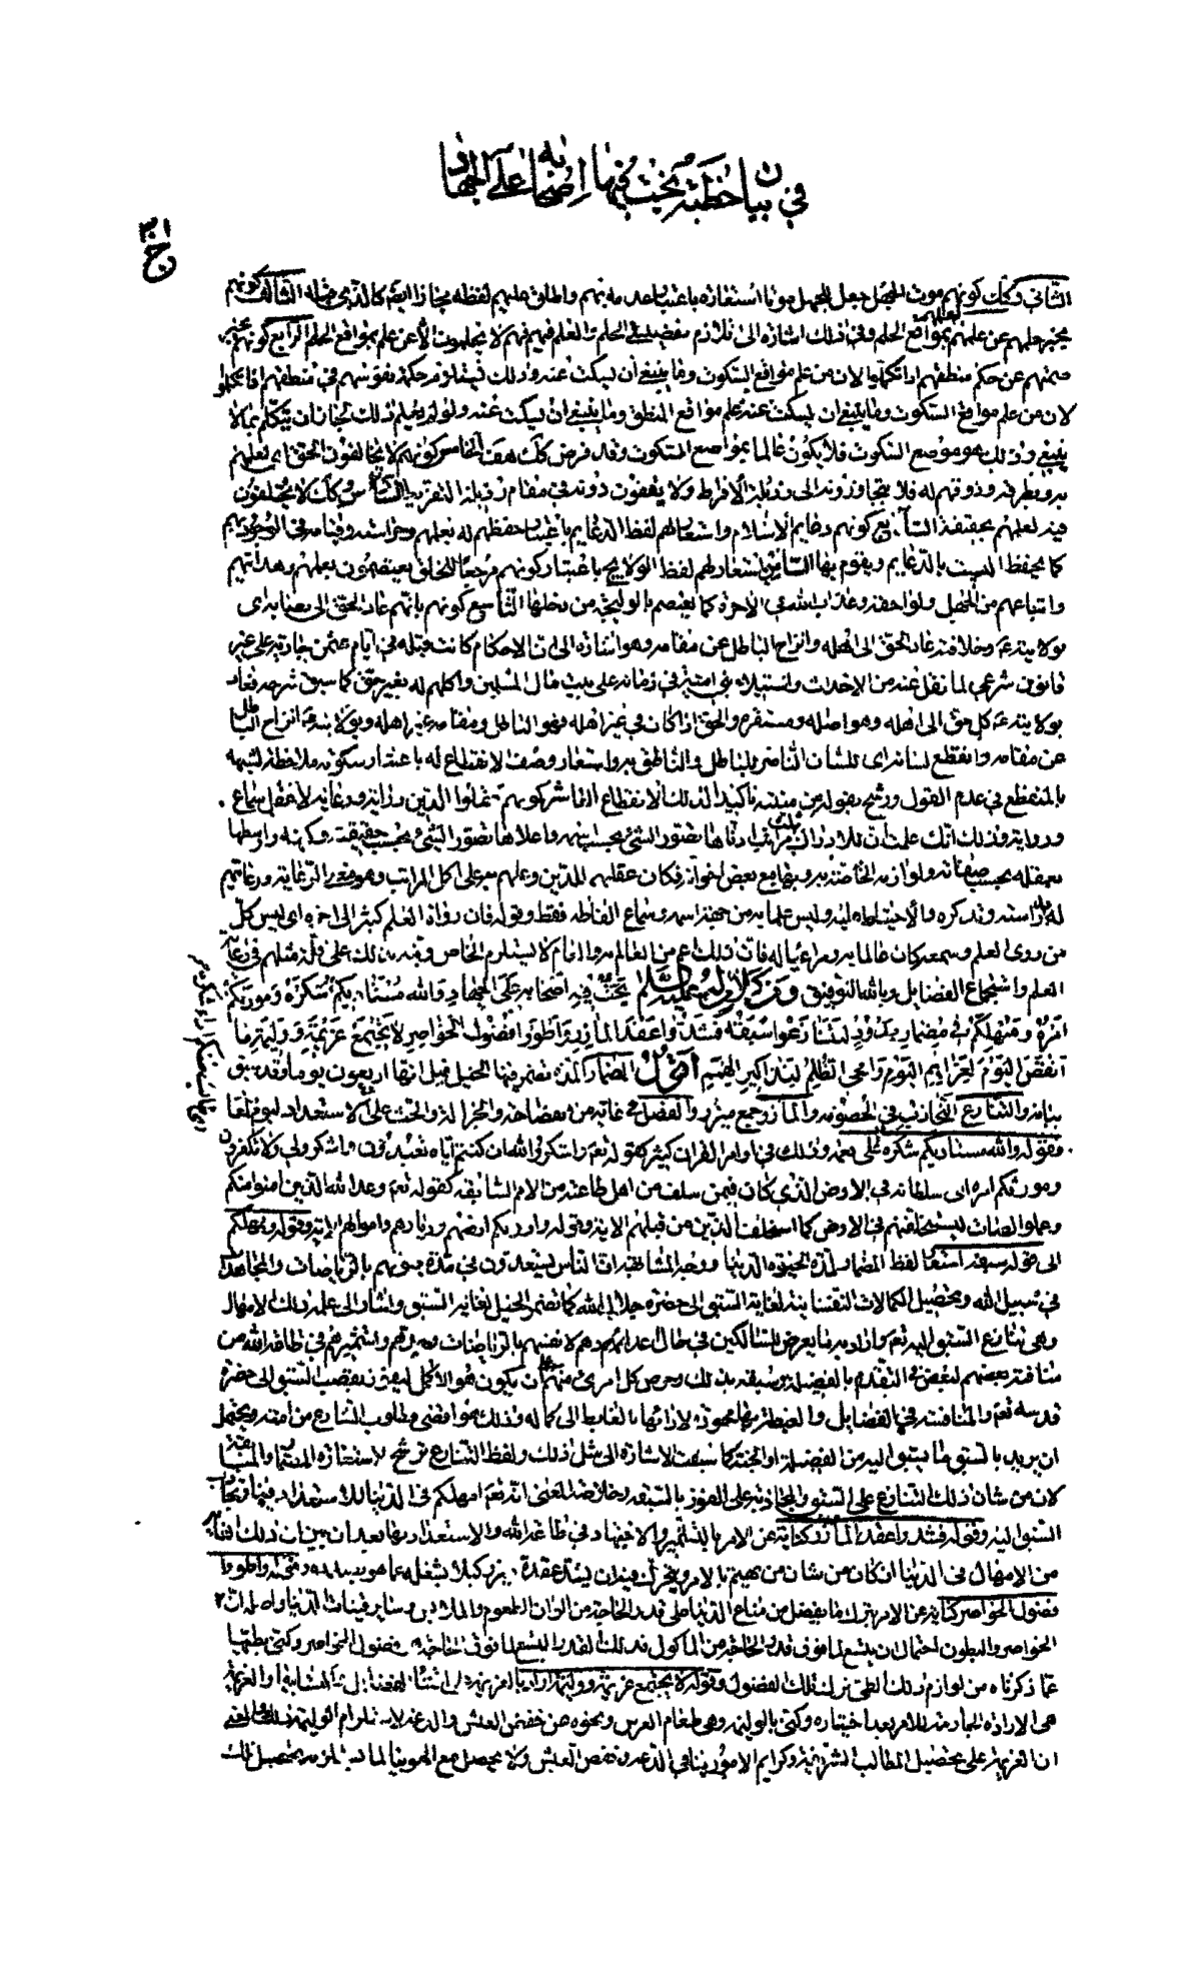 في بيان خطبته يحث فيها اصحابه على الجهاد
ج ٣١
الثاني وكذلك كونهم موت الجهل جعل للجهل موتا استعارة باعتبار عدمه بهم واطلق عليهم لفظه مجازا ايضا كالذي قبله الثالث كونهم
يخبر حلمهم عن علمهم لعلمهم بمواقع الحلم وفي ذلك اشارة الى تلازم فضيلتي الحلم والعلم فيهم فهم لا يحلمون الا عن علم بمواقع الحلم الرابع كونهم يخبر
صمتهم عن حكم منطقهم اذا تكلموا لان من علم مواقع السكوت وما ينبغي ان يسكت عنه
لان من علم مواقع السكوت وما ينبغي ان يسكت عنه علم مواقع المنطق وما ينبغي ان يسكت عنه ولو لم يعلم ذلك لجاز ان يتكلم بما لا
ينبغي وذلك هو موضع السكوت فلا يكون عالما بمواضع السكوت وقد فرض كذلك هف الخامس كونهم لا يخالفون الحق اي لعلمهم
به وبطرقه وذوقهم له فلا يتجاوزونه الى رذيلة الافراط ولا يقفون دونه في مقام رذيلة التفريط السادس وكذلك لا يختلفون
فيه لعلمهم بحقيقته السابع كونهم دعايم الاسلام واستعار لهم لفظ الدعايم باعتبار حفظهم له بعلمهم وحراسته وقيامه في الوجود بهم
كما يحفظ البيت بالدعايم ويقوم بها الثامن استعار لهم لفظ الولايج باعتبار كونهم مرجعا للخلق يعتصمون بعلمهم وهدايتهم
واتباعهم من الجهل ولواحقه وعذاب الله في الاخرة كما يعتصم بالوليجة من دخلها التاسع كونهم بهم عاد الحق الى نصابه اى
بولايته وخلافته عاد الحق الى اهله وانزاح الباطل عن مقامه وهو اشارة الى ان الاحكام كانت قبله في ايام عثمن جارية على غير
قانون شرعي لما نقل عنه من الاحداث واستيلاء بني امية في زمانه على بيت مال المسلمين واكلهم له بغير حق كما سبق شرحه فعاد
بولايته كل حق الى اهله وهو اصله ومستقره والحق اذا كان في غير اهله فهو الباطل ومقامه غير اهله وبولايته انزاح الباطل
عن مقامه وانقطع لسانه اى لسان الناصر للباطل والناطق به واستعار وصف الانقطاع له باعتبار سكوته ملاحظة لشبهه
بالمنقطع في عدم القول ورشح بقوله من منبته تاكيدا لذلك الانقطاع العاشر كونهم عقلوا الدين رعاية ودراية لا عقل سماع
ورواية وذلك انك علمت ان للادراك ثلث مراتب ادناها تصور الشئ بحسب اسمه واعلاها تصور الشئ بحسب حقيقته وكنهه واوسطها
تعقله بحسب صفاته ولوازمه الخاصة به وبها مع بعض اجزائه فكان عقلهم للدين وعلمهم به على اكمل المراتب وهو معنى الرعاية ورعايتهم
له دراسته وتذكره والاحتياط عليه وليس علما به من جهة اسمه وسماع الفاظه فقط وقوله فان رواة العلم كثير الى اخره اى ليس كل
من روى العلم وسمعه كان عالما به ومراعيا له فان ذلك اعم من العالم به والعام لا يستلزم الخاص
العلم واستجماع الفضايل وبالله التوفيق ومن كلام له عليه السلم يحث فيه اصحابه على الجهاد والله مستاديكم شكره ومورثكم
امره وممهلكم في مضمار محدود لتتنازعوا سبقه فشدوا عقد المازر واطووا فضول الخواصر لا يجتمع عزيمة ووليمة ما
انقض النوم لعزايم اليوم وامحى الظلم لتذاكير الهمم اقول المضمار المدة تضمر فيها الخيل قيل انها اربعون يوما وقد سبق
بيانه والتنازع التجاذب في الخصومة والمازر جمع ميزر
وقوله والله مستاديكم شكره على نعمه وذلك في اوامر القران كثير كقوله تعم واشكروا لله ان كنتم اياه تعبدون واشكروا لي ولا تكفرون
ومورثكم امره اى سلطانه في الارض الذي كان فيمن سلف من اهل طاعته من الامم السابقة كقوله تعم وعد الله الذين امنوا منكم
وعملوا الصالحات ليستخلفنهم في الارض كما استخلف الذين من قبلهم الاية وقوله واورثكم ارضهم وديارهم واموالهم الاية وقوله وممهلكم
الى قوله سبقه استعار لفظ المضمار لمدة الحيوة الدنيا ووجه المشابهة ان الناس يستعدون في مدة حيوتهم بالرياضات والمجاهدات
في سبيل الله وتحصيل الكمالات النفسانية لغاية السبق الى حضرة جلال الله كما تضمر الخيل لغاية السبق واشار الى علة ذلك الامهال
وهي تنازع السبق اليه تعم واراد به ما يعرض للسالكين في حال اعدادهم لانفسهم بالرياضات وجدهم وتشميرهم في طاعة الله من
منافسة بعضهم لبعض في التقدم بالفضيلة وسبقه بذلك وحرص كل امرئ منهم على ان يكون هو الاكمل ليفوز بقصب السبق الى حضرة
قدسه تعم والمنافسة في الفضايل والغبطة بها محمودة لادائها بالغابط الى كماله وذلك هو اقصى مطلوب الشارع من امته ويحتمل
ان يريد بالسبق ما يستبق اليه من الفضيلة او الجنة كما سبقت الاشارة الى مثل ذلك ولفظ التنازع ترشيح لاستعارة المضمار والمسابقة
لان من شان ذلك التنازع على السبق والمجاذبة على الفوز بالسبقة وخلاصة المعنى انه تعم امهلكم في الدنيا للاستعداد فيها وتجاذب
السبق اليه وقوله فشدوا عقد المازر كناية عن الامر بالتشمير والاجتهاد في طاعة الله والاستعداد بها بعد ان بين ان ذلك الغاية
من الامهال في الدنيا اذ كان من شان من يهتم بالامر ويتحرك فيه ان يشد عقدة ميزره كيلا يشغله عما هو بصدده وقوله واطووا
فضول الخواصر كناية عن الامر بترك ما يفضل من متاع الدنيا على قدر الحاجة من الوان المطعوم والملابس وساير قينات الدنيا واصله ان
الخواصر والبطون احتمال ان يتسع لما فوق قدر الحاجة من الماكول فذلك القدر المتسع لما فوق الحاجة هو فضول الخواصر وكنى بطيها
عما ذكرناه من لوازم ذلك الطي ترك تلك الفضول وقوله لا يجتمع عزيمة ووليمة اراد بالعزيمة
هي الارادة الجازمة للامر بعد اختياره وكنى بالوليمة وهي طعام العرس ونحوه عن خفض العيش والدعة لاستلزام الوليمة ذلك والمعنى
ان العزيمة على تحصيل المطالب الشريفة وكرايم الامور ينافي الدعة وخفض العيش ولا يحصل مع الهوينا لما يستلزمه تحصيل تلك